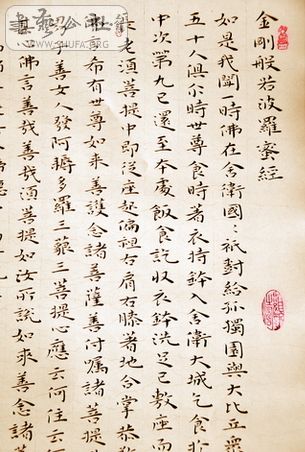 金剛般若波羅蜜經
如是我聞一時佛在舍衛國祇對給孤獨園與大比丘衆
五十人俱尒時世尊食時著衣持鉢入舍衛大城乞食於
中次第乞已還至本處飯食訖収衣鉢洗足已敷座而
老須菩提中即從座起偏袒右肩右膝著地合掌恭敬
希有世尊如来善護念諸菩薩善付囑諸菩提
子善女人發阿耨多羅三藐三菩提心應云何住云何
心佛言善哉善哉須菩提如汝所説如来善念諸菩
WWW.SHUFA.ORG